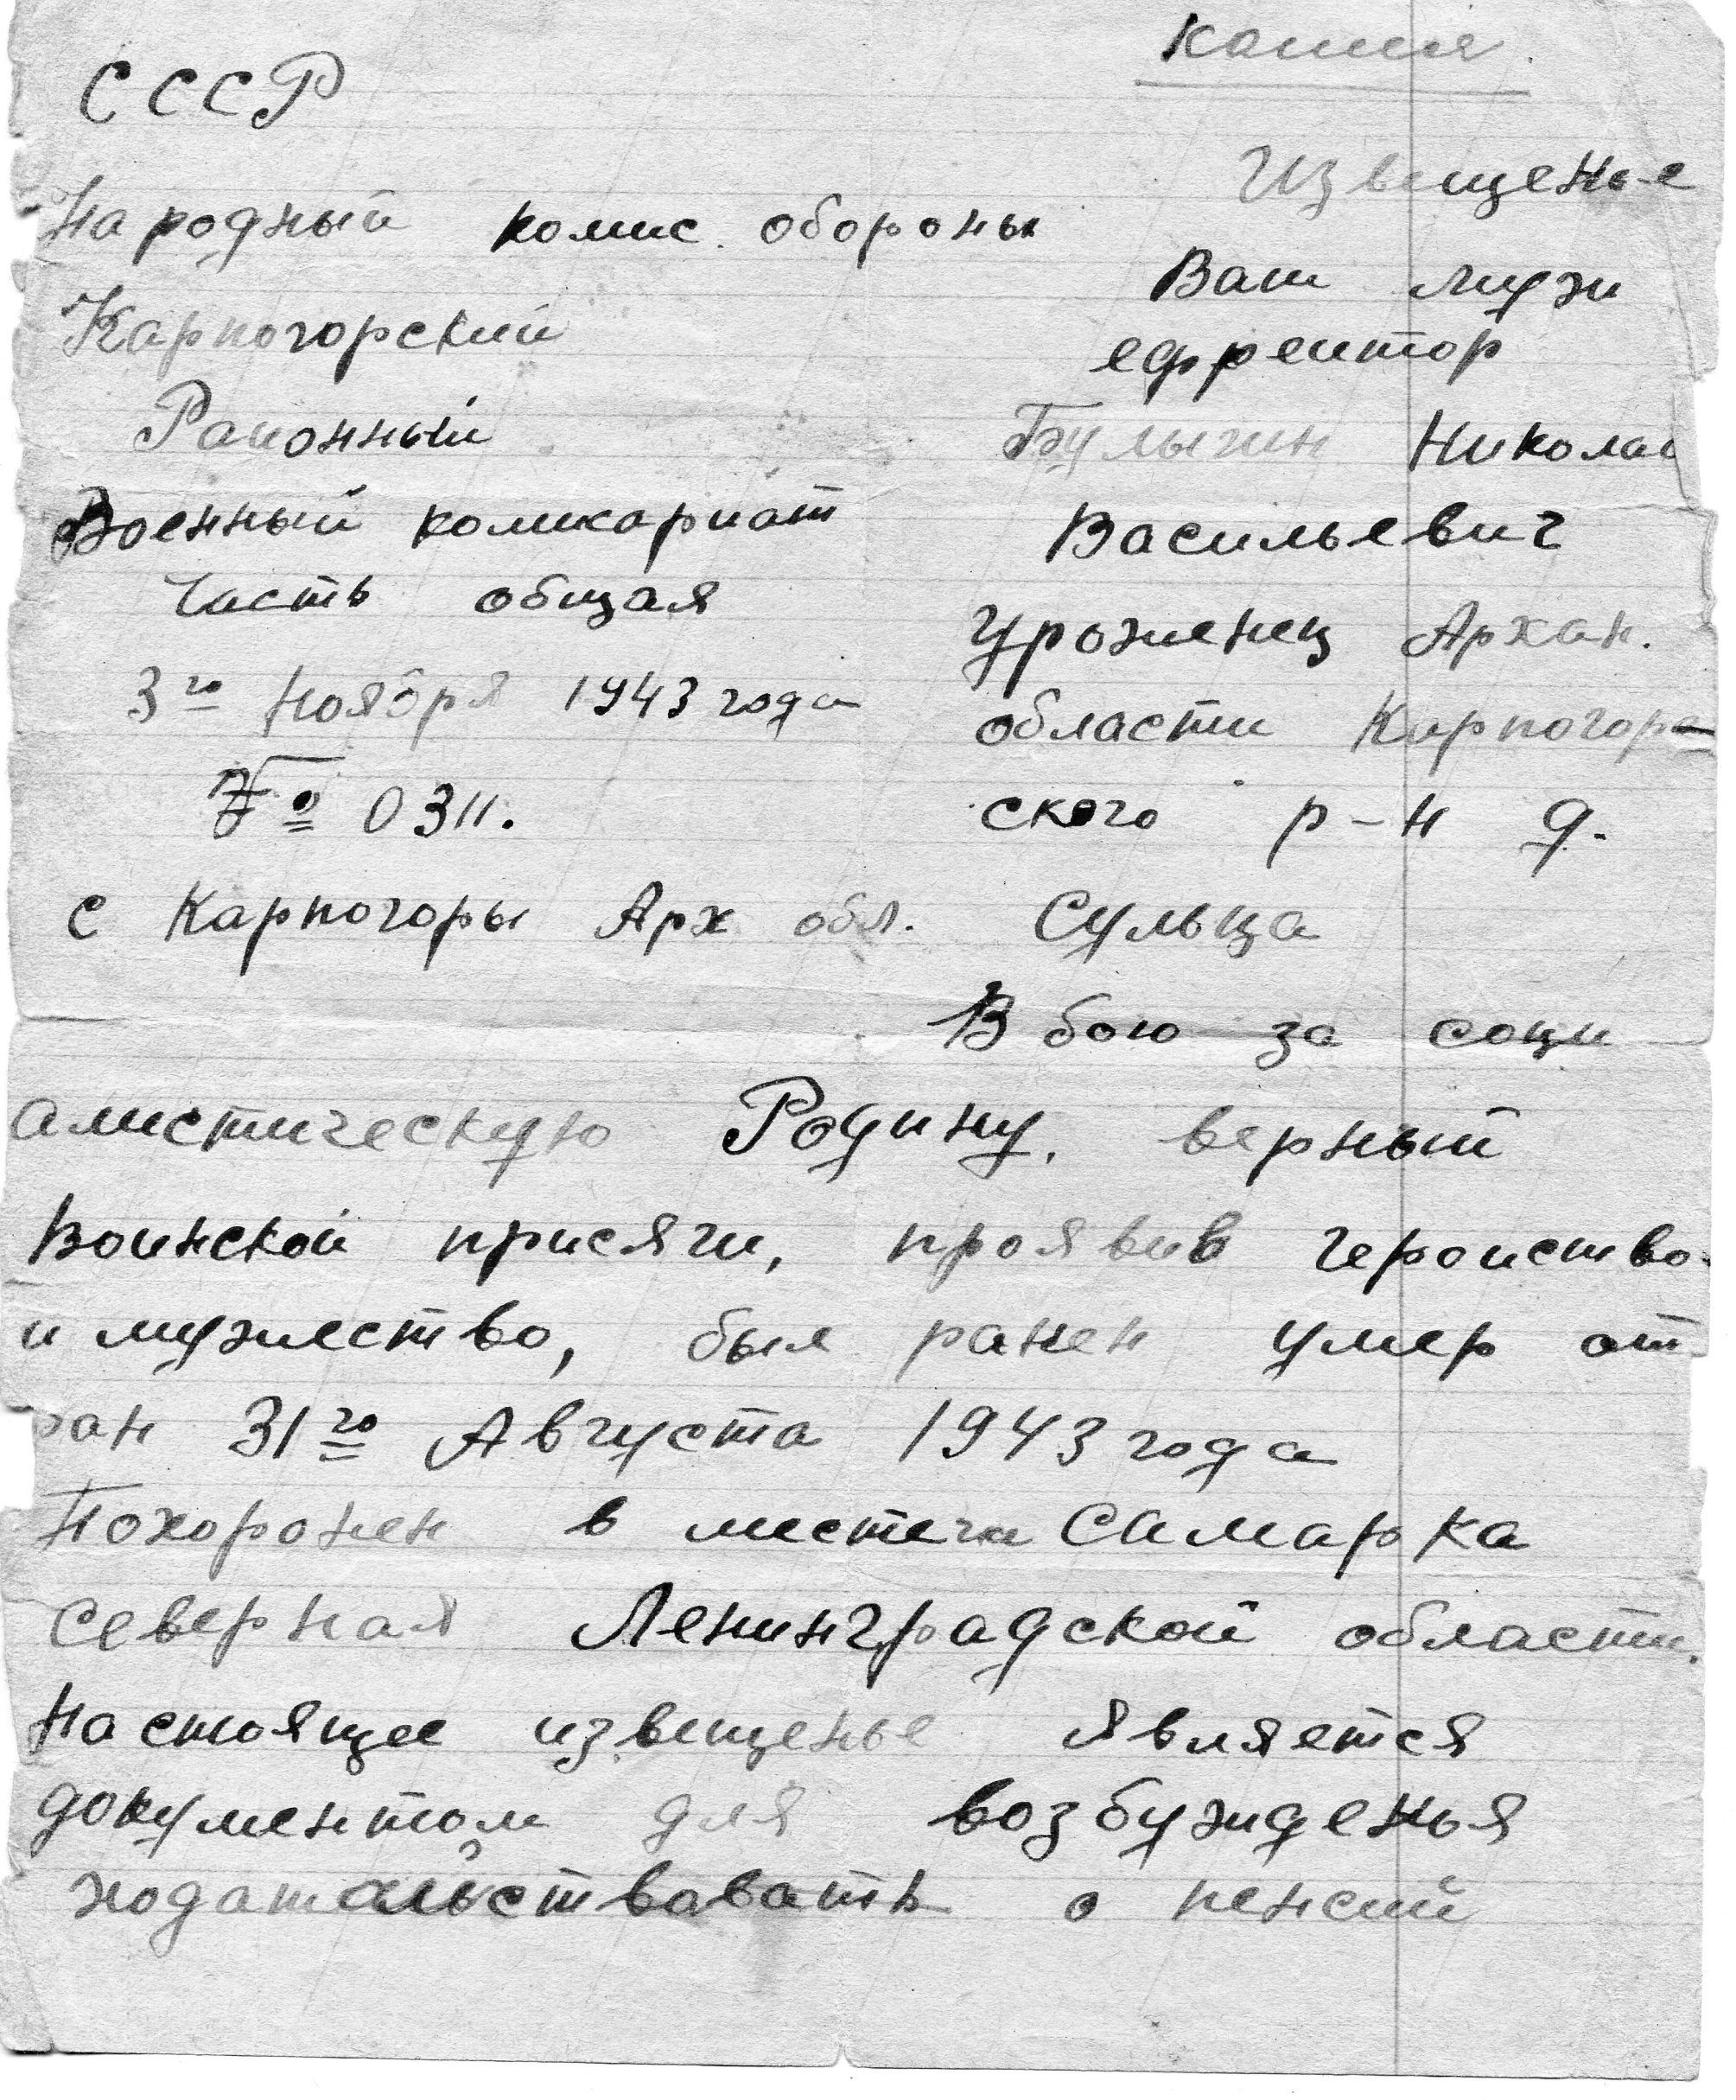 копия.
СССР
Народный комис. обороны
Карпогорский
Районный
Военный комикариат
Часть общая
3го ноября 1943 года
№ 0311.
с Карпогоры Арх обл.
Извещенье
Ваш муж
ефрейтор
Булыгин Николай
Васильевич
Уроженец Архан.
области Карпогор-
ского р-н д.
Сульца
В бою за соци
алистическую Родину, верный
Воинской присяги, проявив геройство
и мужество, был ранен умер от
ран 31го Августа 1943 года
Похоронен в местечи Самарка
северная Ленинградской области.
Настоящее извещенье является
документом для возбужденья
ходатальствовать о пенсий